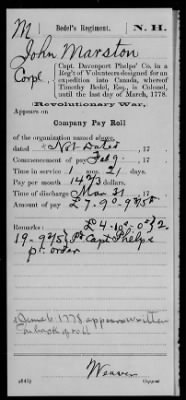 M | Bedel's Regiment. | N. H.
John Marston
Corpl, Capt. Davenport Phelps' Co. in a
Reg't of Volunteers designed for an
expedition into Canada, whereof
Timothy Bedel, Esq., is Colonel,
until the last day of March, 1778.
Revolutionary War.
Appears on
Company Pay Roll
of the organization named above,
dated Not Dated, 17
Commencement of pay Feb 9, 17
Time in service 1 mos. 21 days.
Pay per month 14 2/3 dollars
Time of discharge Mar 31, 17
Amount of pay £ 7-9-
Remarks: £4-10-0
19- Pd Capt Phelps
pr. order
1778 appears written
on back of roll
Weaver
Copyist